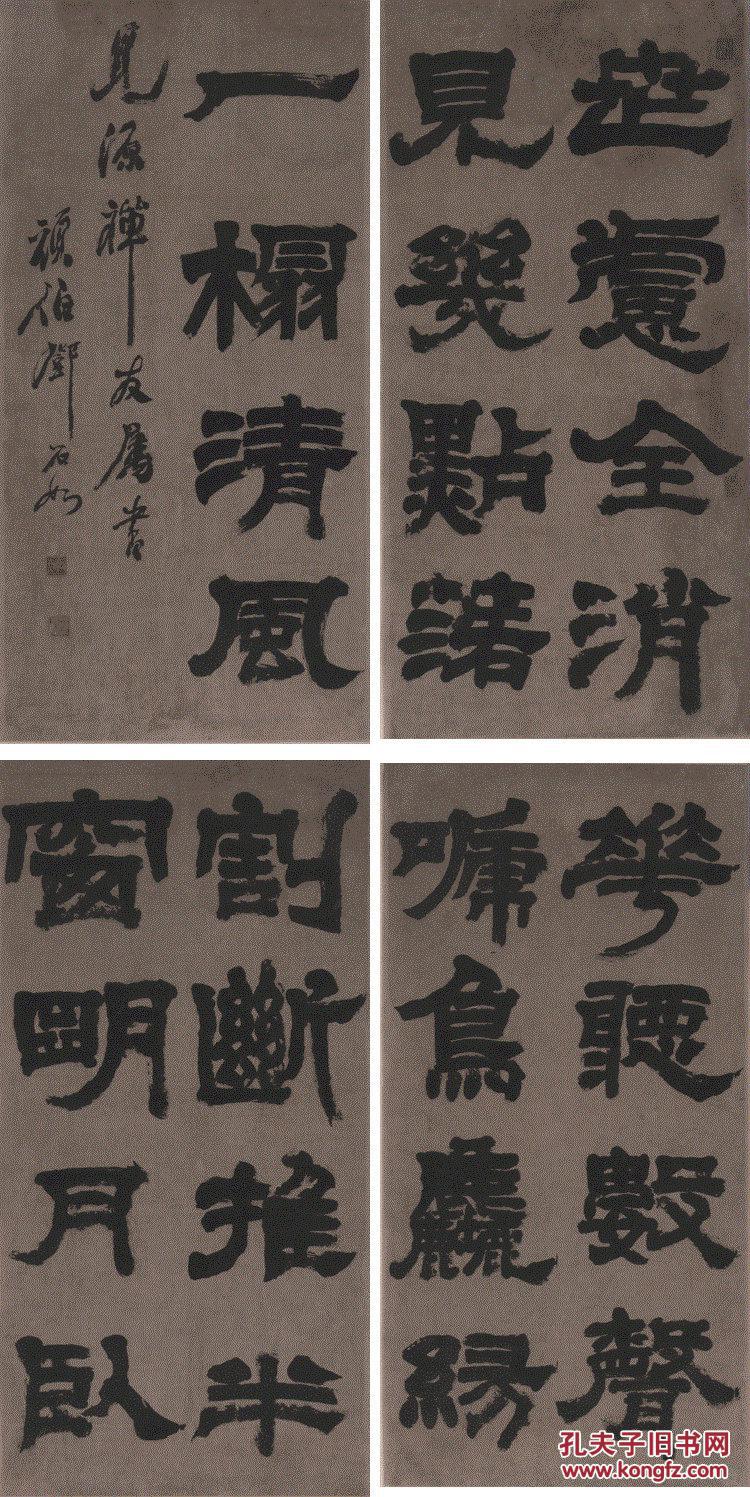 世慮全消
見幾點落
華聽數聲
嗁鳥塵緣
割斷推半
窗明月臥
一榻清風
見源禪友屬書
頑伯鄧石如
孔夫子旧书网
www.kongfz.com